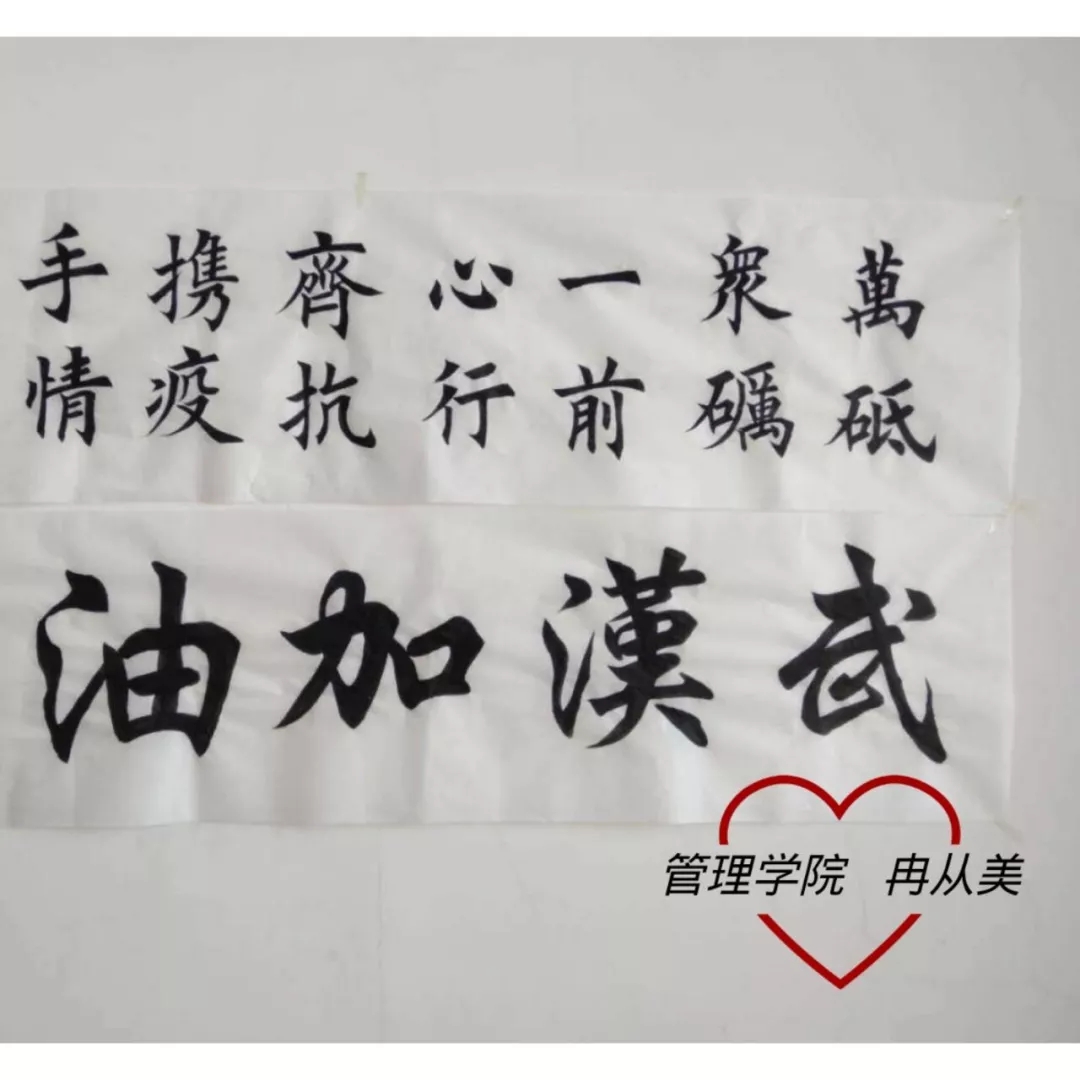 萬衆一心齊携手
砥礪前行抗疫情
武漢加油
管理学院 冉从美